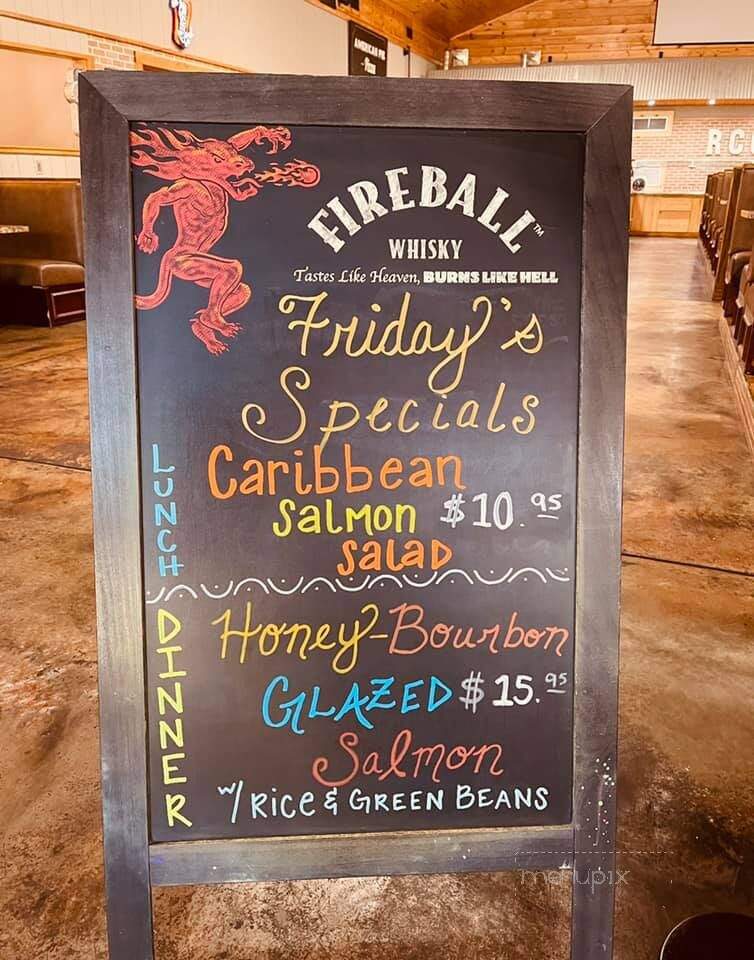 AMERICAN PIE
RC
FIREBALL™
WHISKY
Tastes Like Heaven, BURNS LIKE HELL
Friday's
Specials
LUNCH
Caribbean
Salmon $10.95
Salad
DINNER
Honey-Bourbon
GLAZED $15.95
Salmon
w/ Rice & GREEN BEANS
menupix